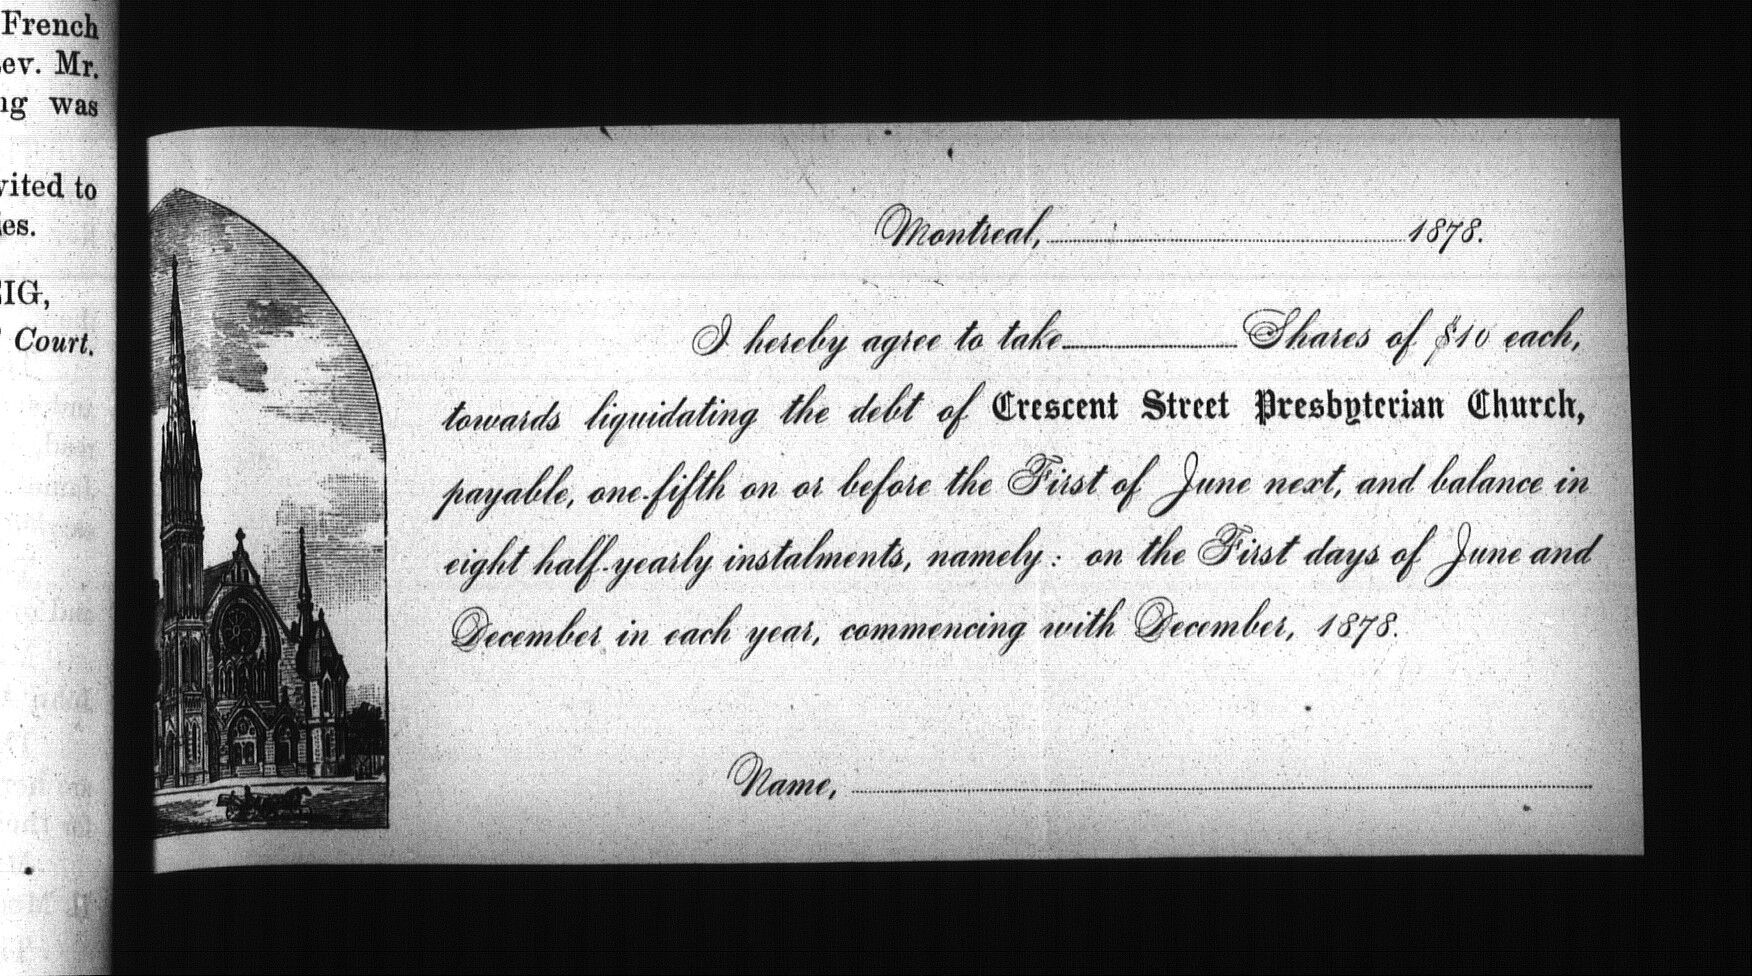 French
Mr.
was
to
IG,
Court.
Montreal, 1878.
I hereby agree to take Shares of $10 each,
towards liquidating the debt of Crescent Street Presbyterian Church,
payable, one-fifth on or before the First of June next, and balance in
eight half-yearly instalments, namely: on the First days of June and
December in each year, commencing with December, 1878.
Name,